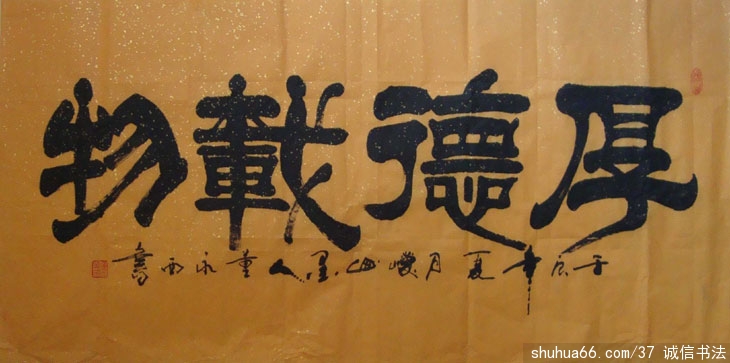 厚德載物
壬辰年夏月山墨人董永西書
shuhua66.com/37 诚信书法